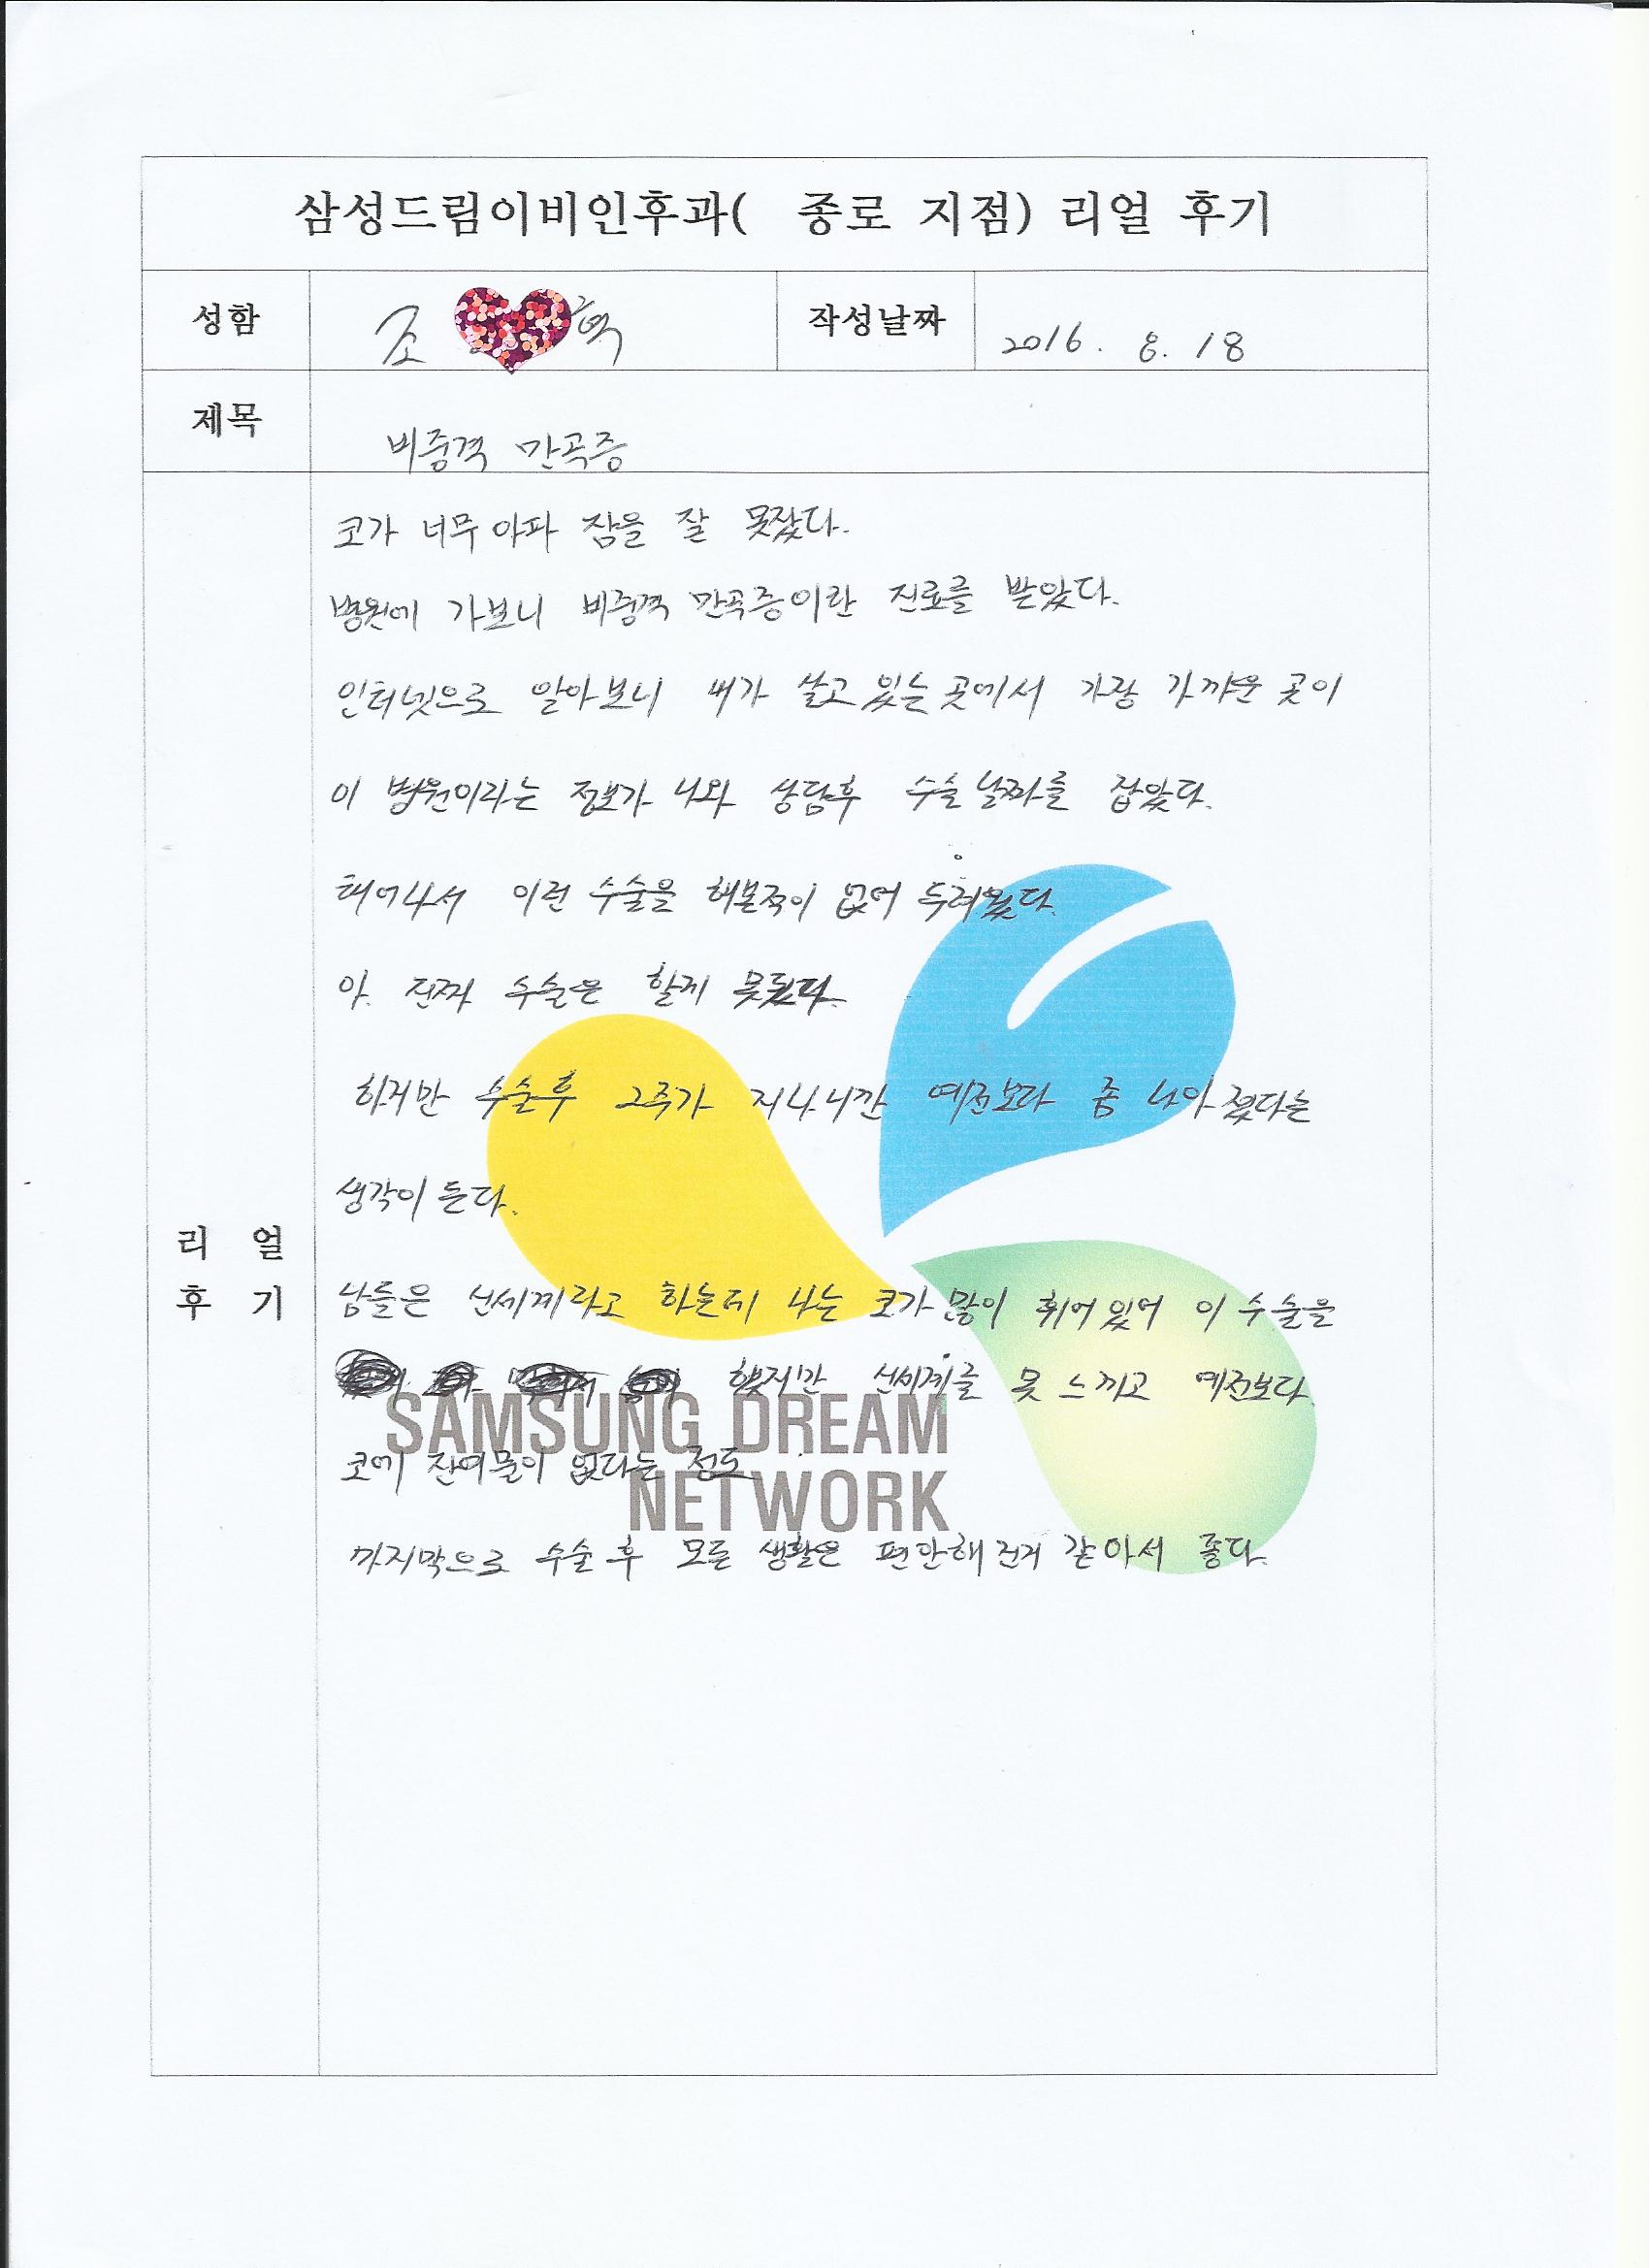 삼성드림이비인후과( 종로 지점) 리얼 후기
성함 조 작성날짜 2016. 8. 18
제목 비중격 만곡증
코가 너무 아파 잠을 잘 못잤다.
병원에 가보니 비중격 만곡증이란 진료를 받았다.
인터넷으로 알아보니 내가 살고 있는 곳에서 가장 가까운 곳이
이 병원이라는 정보가 나와 상담후 수술 날짜를 잡았다.
태어나서 이런 수술을 해본적이 없어 두려웠다.
아. 진짜 수술은 할게 못된다.
하지만 수술후 2주가 지나니깐 예전보다 좀 나아졌다는
생각이 든다.
리 얼
후 기
남들은 신세계라고 하는데 나는 코가 많이 휘어있어 이 수술을
했지만 신세계를 못 느끼고 예전보다
SAMSUNG DREAM
코에 잔여물이 없다는 정도
NETWORK
마지막으로 수술 후 모든 생활은 편안해진거 같아서 좋다.